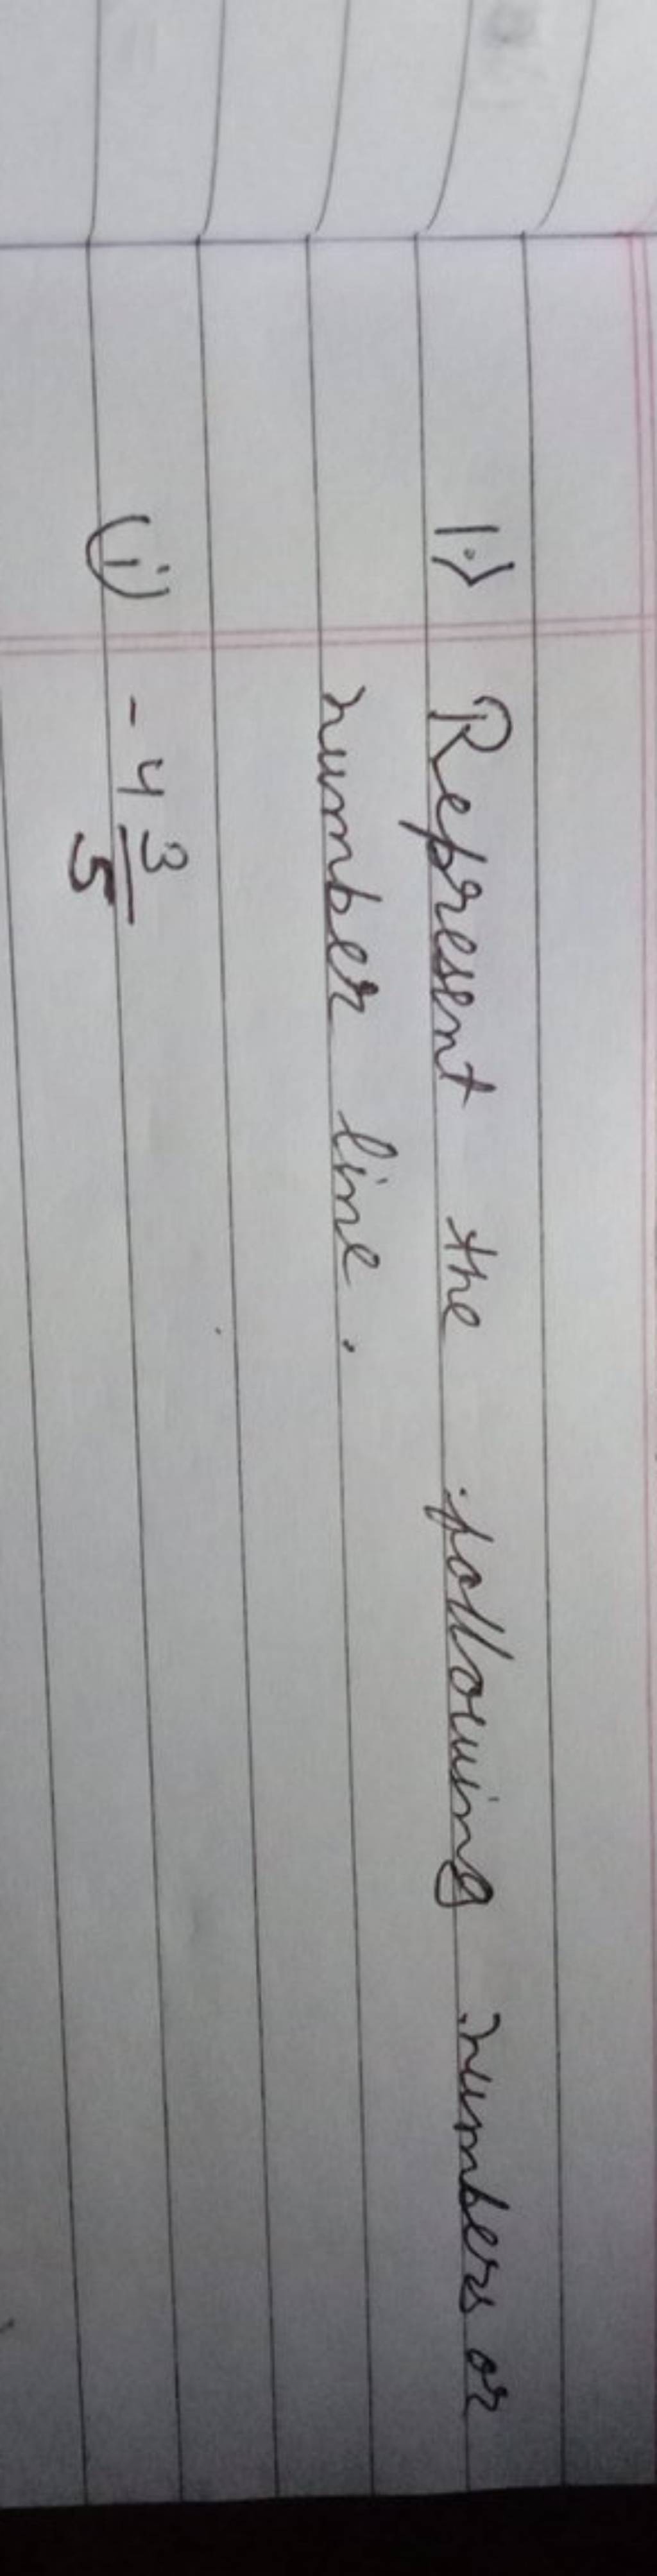 1.> Represent the following numbers on
number line.
(i) -4 3/5